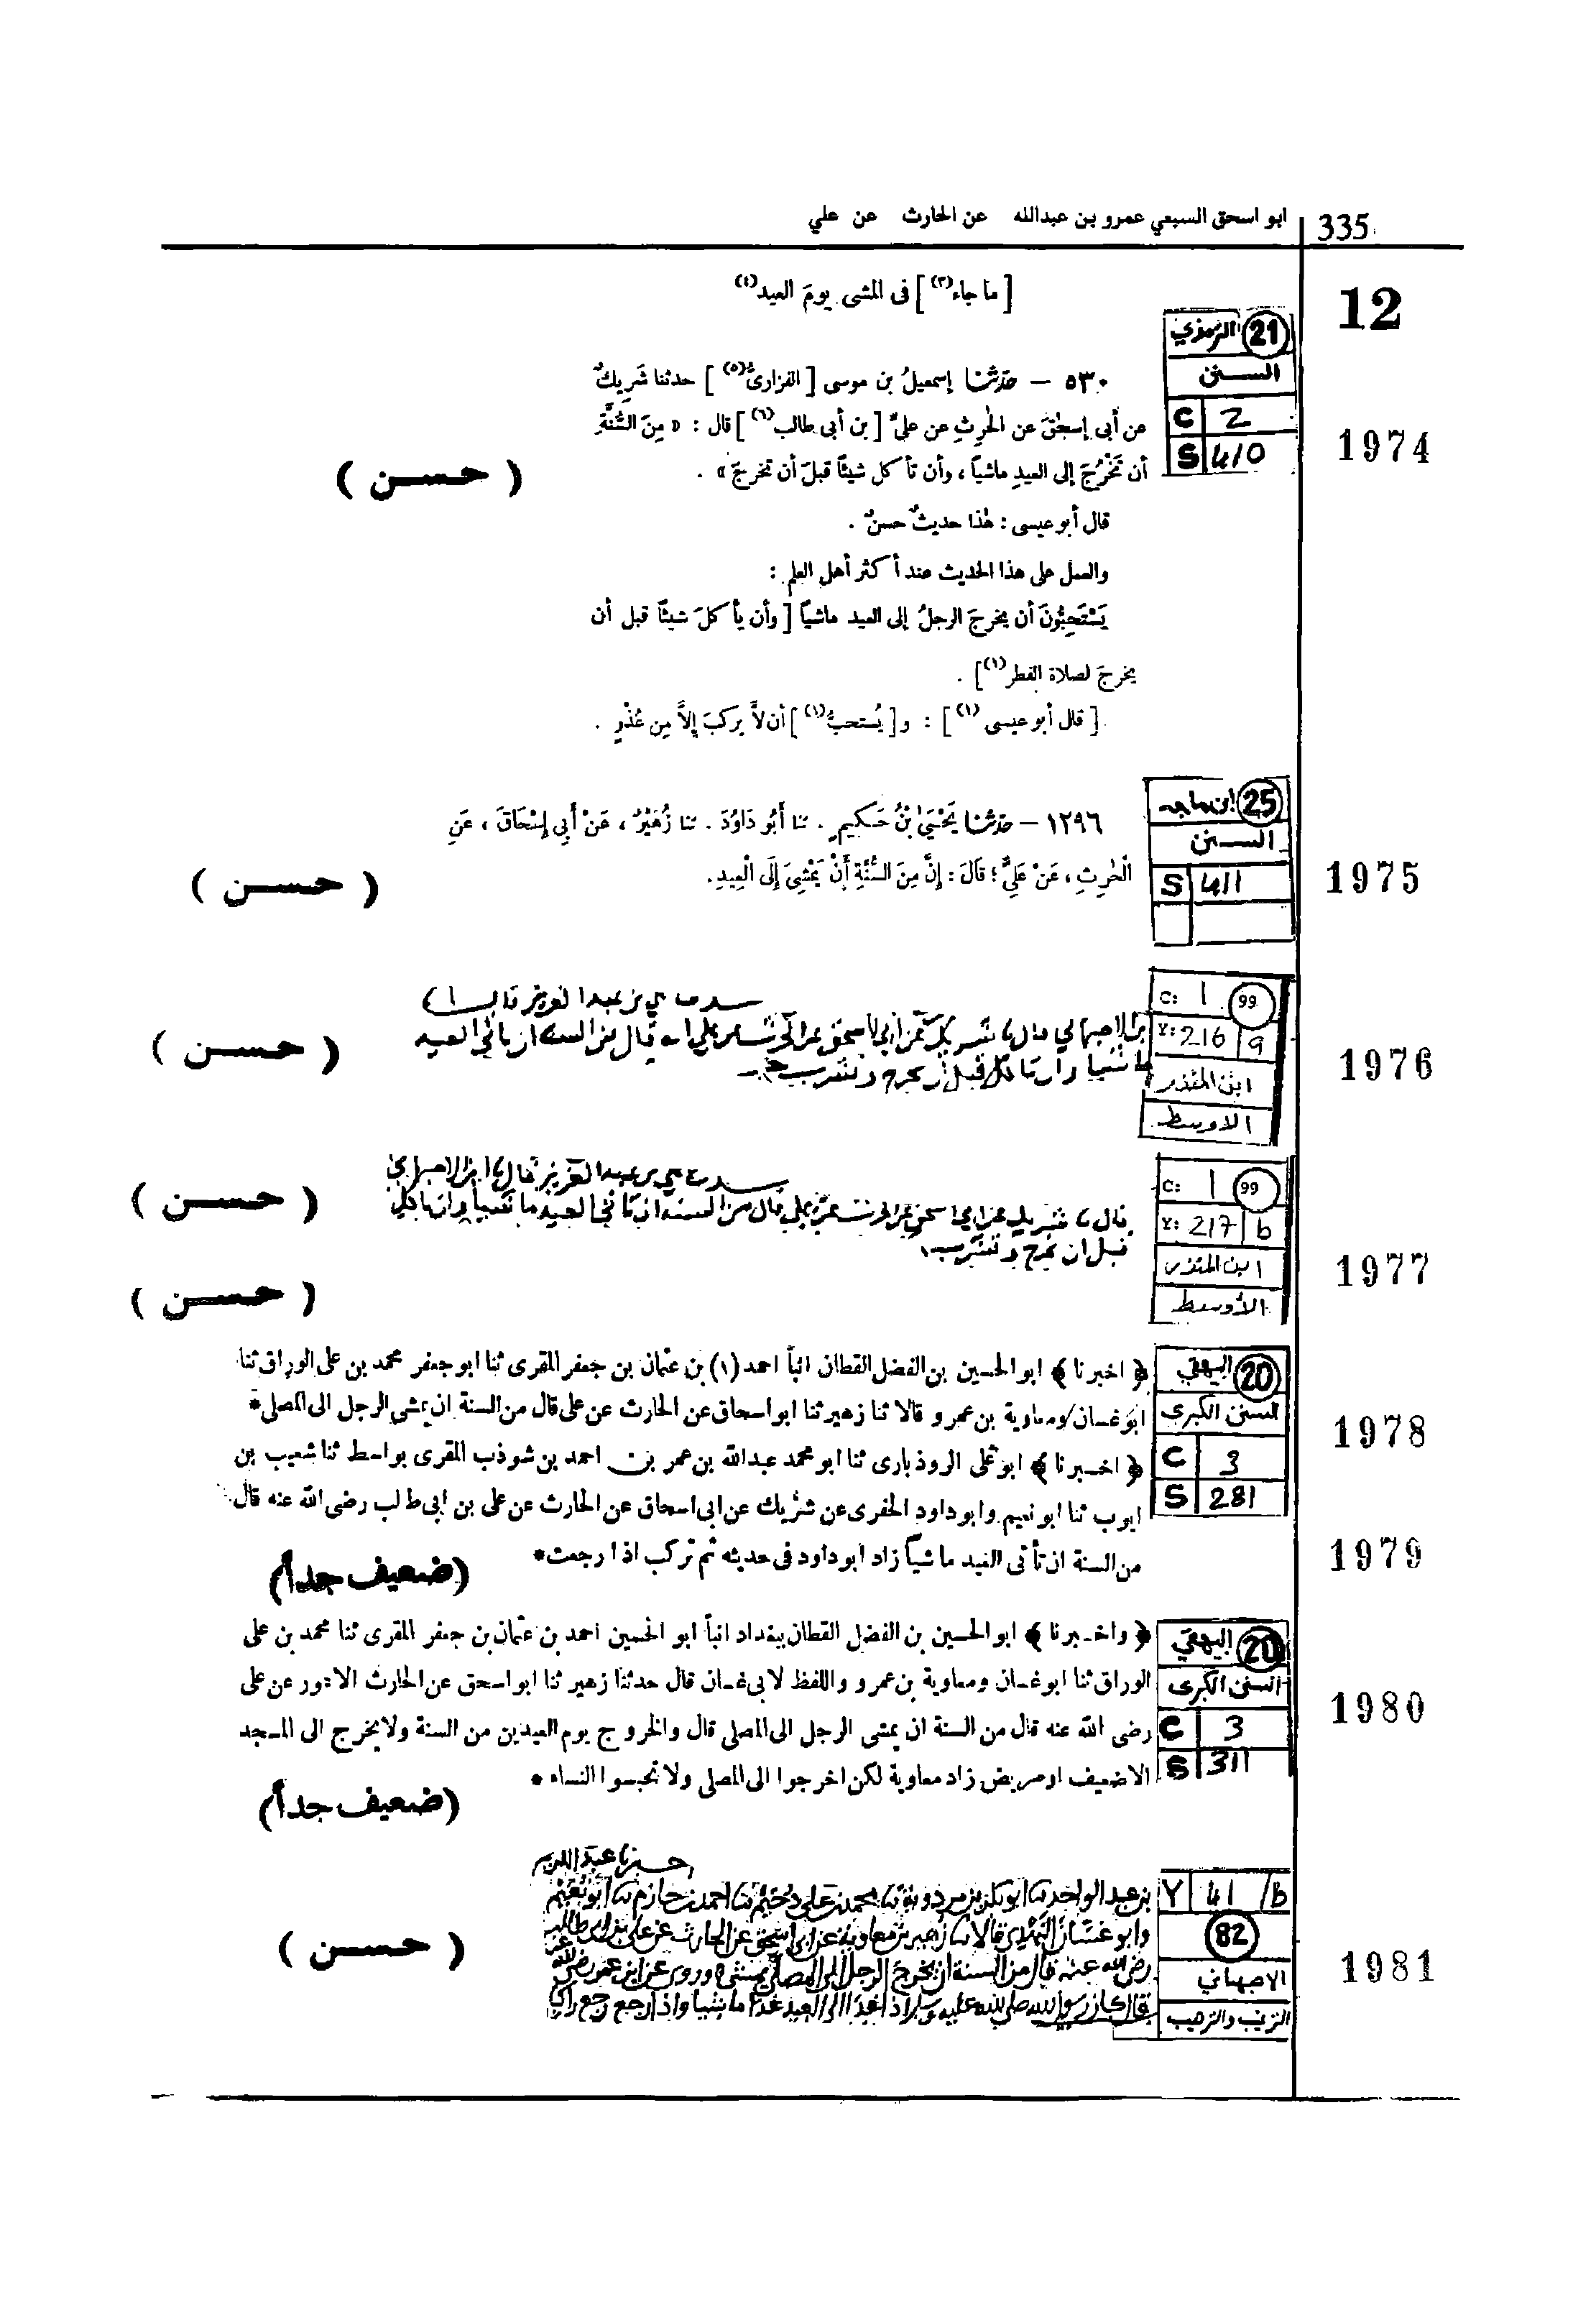 335 ابو اسحق السبيعي عمرو بن عبدالله عن الحارث عن علي
12
[ ما جاء(٣) ] فى المشى يومَ العيد(٤)
21 الترمذي
السنن
C 2
S 410
1974
٥٣٠ – حدثنا إسمعيلُ بن موسى [ الفزارىُّ(٥) ] حدثنا شَرِيكٌ
عن أبى إسحٰقَ عن الحٰرِثِ عن علىٍّ [ بن أبى طالب(٦) ] قال : « مِنَ السُّنَّةِ
أن تَخْرُجَ إلى العيدِ ماشياً ، وأن تأكل شيئاً قبلَ أن تخرجَ » .
( حسن )
قال أبو عيسى : هٰذا حديثٌ حسنٌ .
والعمل على هذا الحديث عند أكثر أهل العلم :
يَسْتَحِبُّونَ أن يخرجَ الرجلُ إلى العيد ماشياً [ وأن يأكلَ شيئاً قبل أن
يخرجَ لصلاة الفطر(١) ] .
[ قال أبو عيسى(١) ] : و [ يُستحبُّ(١) ] أن لاَّ يركبَ إلاَّ مِن عُذْرٍ .
25 ابن ماجه
السنن
S 411
1975
١٢٩٦ – حدثنا يَحْيَىٰ بْنُ حَكِيمٍ . ثنا أَبُو دَاوُدَ . ثنا زُهَيْرٌ ، عَنْ أَبِي إِسْحَاقَ ، عَنِ
الْحٰرِثِ ، عَنْ عَلِيٍّ ؛ قَالَ : إِنَّ مِنَ السُّنَّةِ أَنْ يَمْشِيَ إِلَى الْعِيدِ .
( حسن )
C: 1 99
Y: 216 a
ابن المنذر
الاوسط
1976
بن عبدالعزيز قال
الاصبهاني قال شريك عن ابي اسحق عن الحرث عن علي انه قال من السنة ان ياتي العيد
ماشيا وان تاكل قبل ان يخرج وتشرب
( حسن )
C: 1 99
Y: 217 b
ابن المنذر
الأوسط
1977
بن عبدالعزيز قال ابن الاصبهاني
قال شريك عن ابي اسحق عن الحرث عن علي قال من السنة ان تاتي العيد ماشيا وان تاكل
قبل ان تخرج وتشرب
( حسن )
( حسن )
20 البيهقي
السنن الكبرى
C 3
S 281
1978
﴿ اخبرنا ﴾ ابو الحسين بن الفضل القطان انبأ احمد (١) بن عثمان بن جعفر المقرى ثنا ابو جعفر محمد بن على الوراق ثنا
ابو غسان ومعاوية بن عمرو قالا ثنا زهير ثنا ابو اسحاق عن الحارث عن على قال من السنة ان يمشي الرجل الى المصلى *
1979
﴿ اخبرنا ﴾ ابو على الروذبارى ثنا ابو محمد عبدالله بن عمر بن احمد بن شوذب المقرى بواسط ثنا شعيب بن
ايوب ثنا ابو نعيم وابو داود الحفرى عن شريك عن ابى اسحاق عن الحارث عن على بن ابى طالب رضى الله عنه قال
من السنة ان تأتى العيد ماشياً زاد ابو داود فى حديثه ثم تركب اذا رجعت *
(ضعيف جداً)
20 البيهقي
السنن الكبرى
C 3
S 311
1980
﴿ واخبرنا ﴾ ابو الحسين بن الفضل القطان ببغداد انبأ ابو الحسين احمد بن عثمان بن جعفر المقرى ثنا محمد بن على
الوراق ثنا ابو غسان ومعاوية بن عمرو واللفظ لابى غسان قال حدثنا زهير ثنا ابو اسحق عن الحارث الاعور عن على
رضى الله عنه قال من السنة ان يمشى الرجل الى المصلى قال والخروج يوم العيدين من السنة ولا يخرج الى المسجد
الا ضعيف او مريض زاد معاوية لكن اخرجوا الى المصلى ولا تحبسوا النساء *
(ضعيف جداً)
Y 41 /b
82
الاصبهاني
الترغيب والترهيب
1981
اخبرنا عبد الكريم
بن عبد الواحد ثنا ابو بكر بن مردويه ثنا محمد بن علي بن دحيم ثنا احمد بن حازم ثنا ابو نعيم
وابو غسان النهدي قالا ثنا زهير بن معاوية عن ابي اسحق عن الحارث عن علي بن ابي طالب
رضي الله عنه قال من السنة ان يخرج الرجل الى المصلى يمشي وروي عن ابن عمر رضي الله عنه
قال كان رسول الله صلى الله عليه وسلم اذا غدا الى العيد غدا ماشيا واذا رجع رجع راكبا
( حسن )